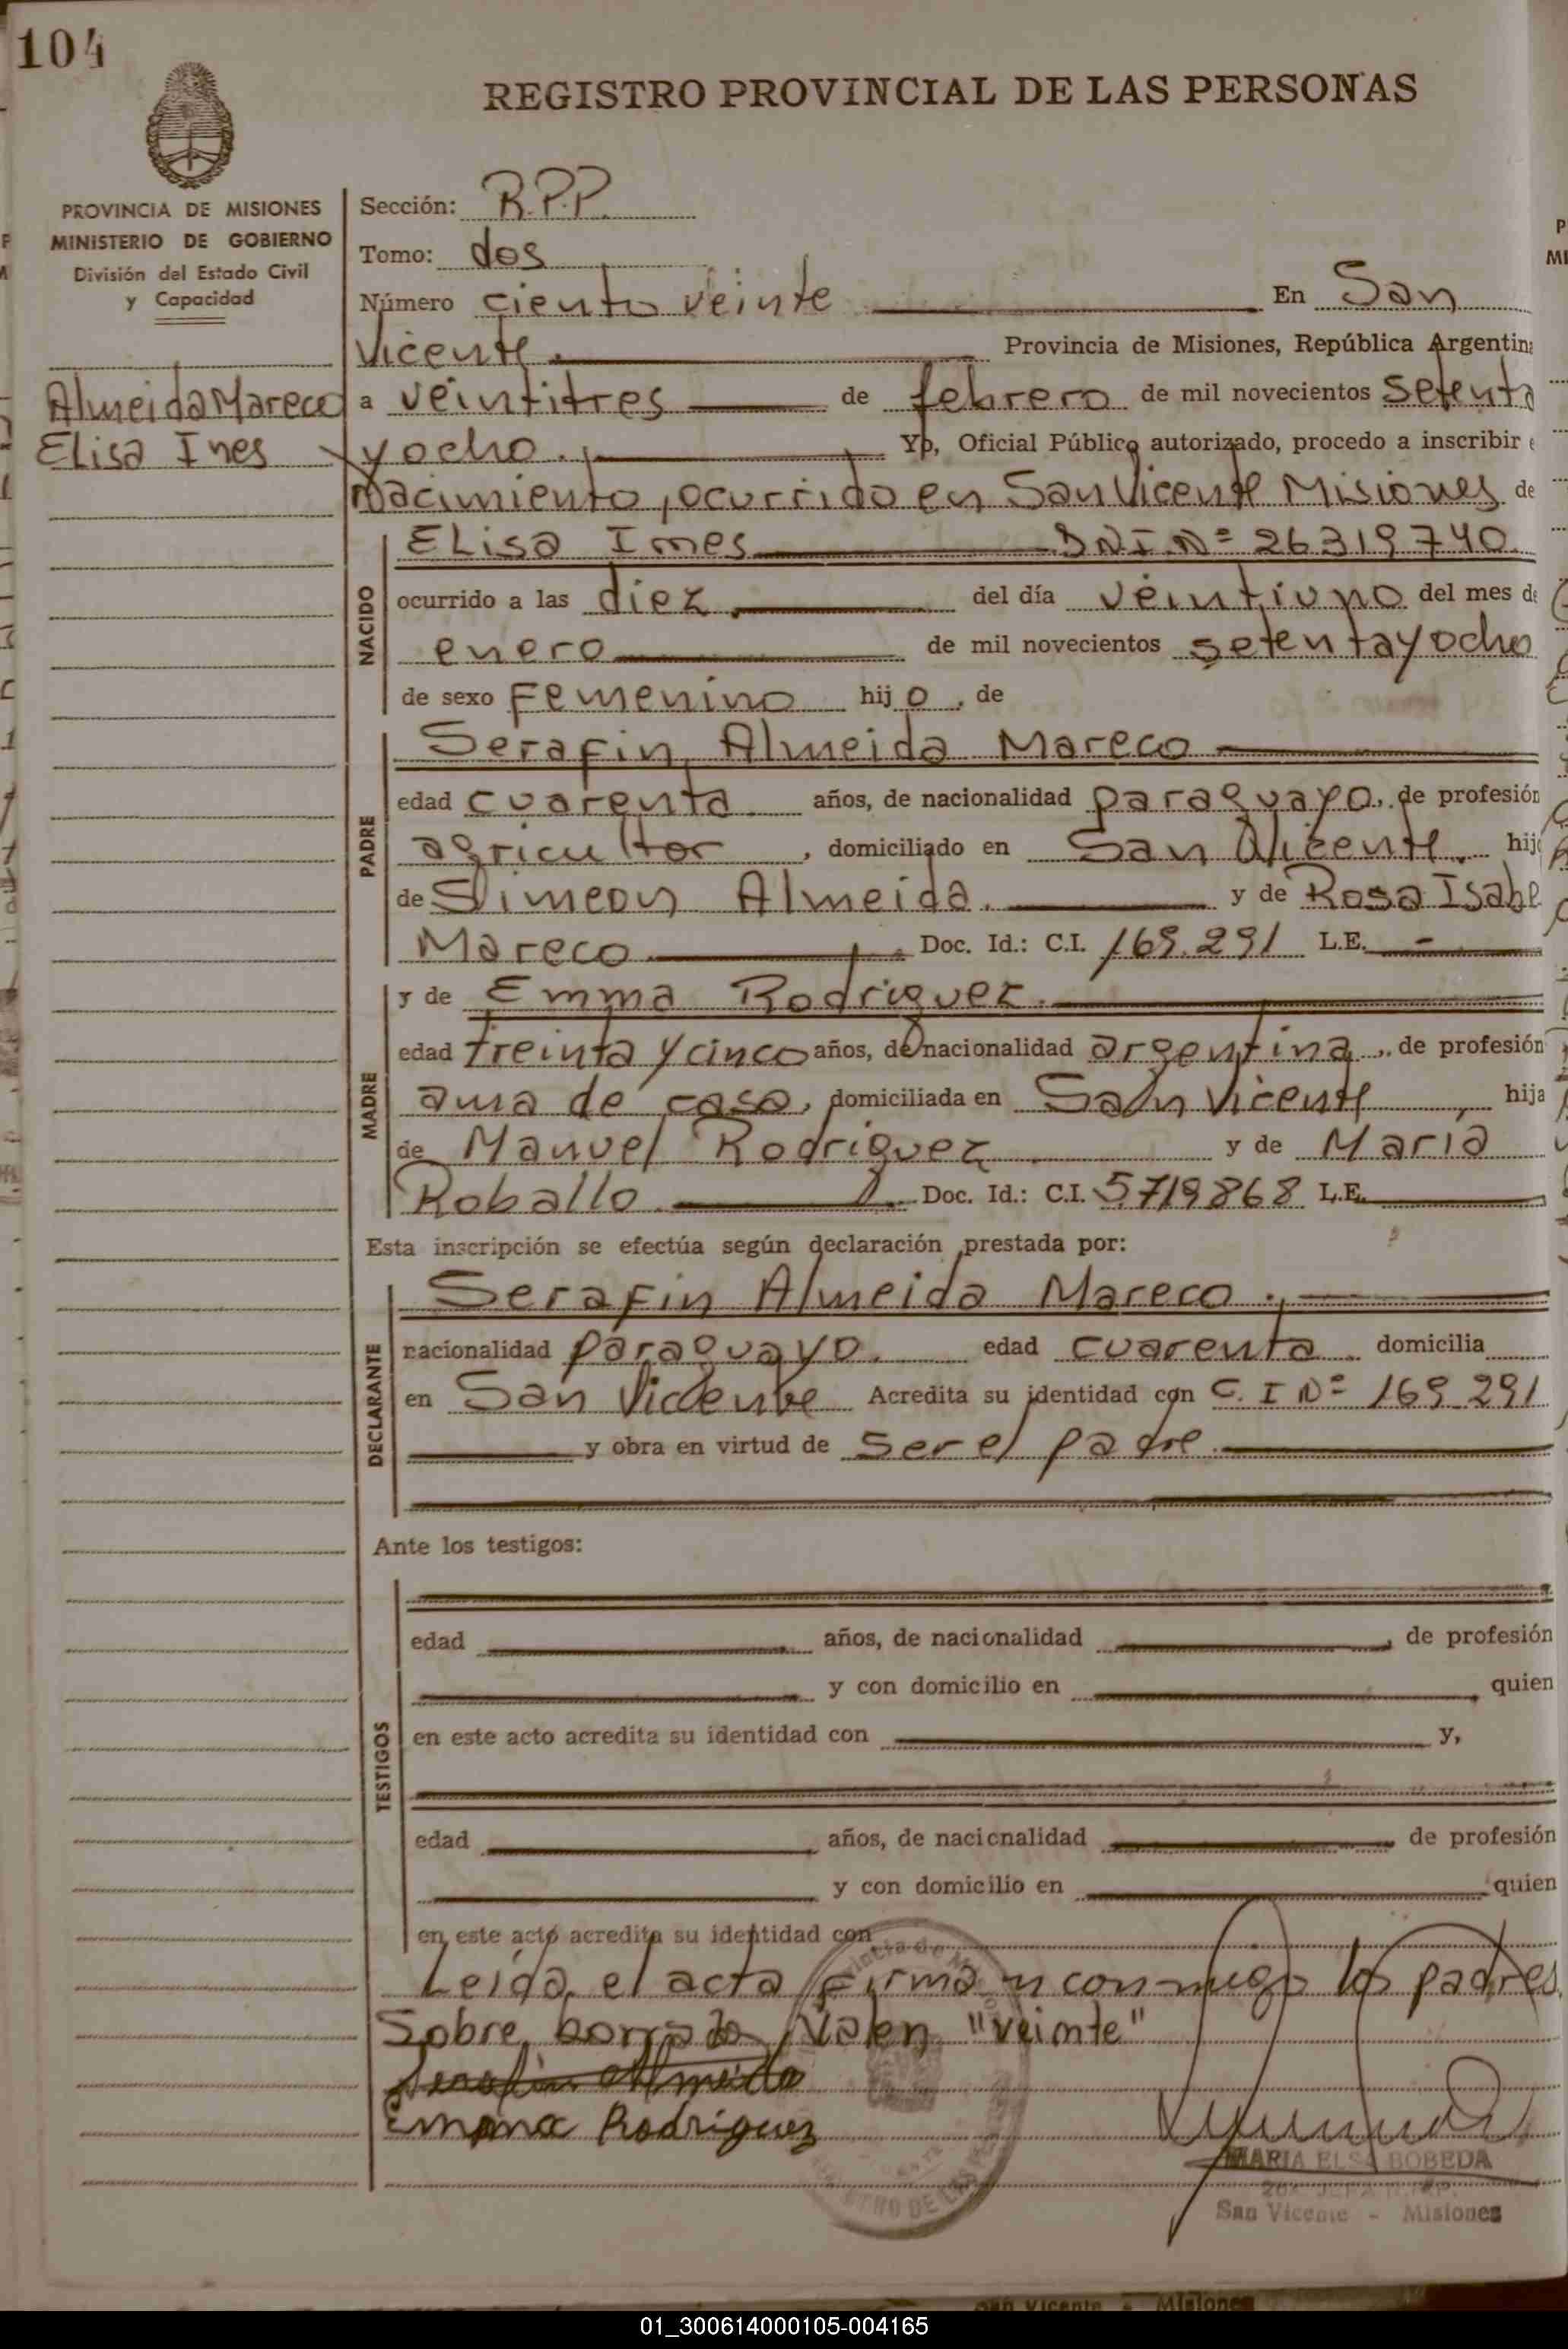 104
REGISTRO PROVINCIAL DE LAS PERSONAS
PROVINCIA DE MISIONES
MINISTERIO DE GOBIERNO
División del Estado Civil
y Capacidad
Almeida Mareco
Elisa Ines
Sección: R.P.P.
Tomo: dos
Número ciento veinte En San
Vicente. Provincia de Misiones, República Argentina
a veintitres de febrero de mil novecientos setenta
y ocho. Yo, Oficial Público autorizado, procedo a inscribir e
nacimiento, ocurrido en San Vicente Misiones de
NACIDO
Elisa Imes DNI.Nº 26319740
ocurrido a las diez del día veintiuno del mes de
enero de mil novecientos setenta y ocho
de sexo Femenino hij o, de
PADRE
Serafin Almeida Mareco
edad cuarenta años, de nacionalidad paraguayo, de profesión
agricultor, domiciliado en San Vicente. hijo
de Simeon Almeida. y de Rosa Isabe
Mareco. Doc. Id.: C.I. 169.291 L.E. -
MADRE
y de Emma Rodriguez.
edad treinta y cinco años, de nacionalidad argentina, de profesión
ama de casa, domiciliada en San Vicente, hija
de Manuel Rodriguez y de Maria
Roballo. Doc. Id.: C.I. 5719868 L.E.
Esta inscripción se efectúa según declaración prestada por:
DECLARANTE
Serafin Almeida Mareco.
nacionalidad paraguayo. edad cuarenta domicilia
en San Vicente Acredita su identidad con C.I Nº 169.291
y obra en virtud de ser el padre.
Ante los testigos:
TESTIGOS
edad años, de nacionalidad, de profesión
y con domicilio en, quien
en este acto acredita su identidad con y,
edad años, de nacionalidad de profesión
y con domicilio en quien
en este acto acredita su identidad con
Leida el acta firman conmigo los padres.
Sobre borrado Valen "veinte"
Serafin Almeida
Emma Rodriguez
MARIA ELSA BOBEDA
San Vicente - Misiones
San Vicente - Misiones
01_300614000105-004165